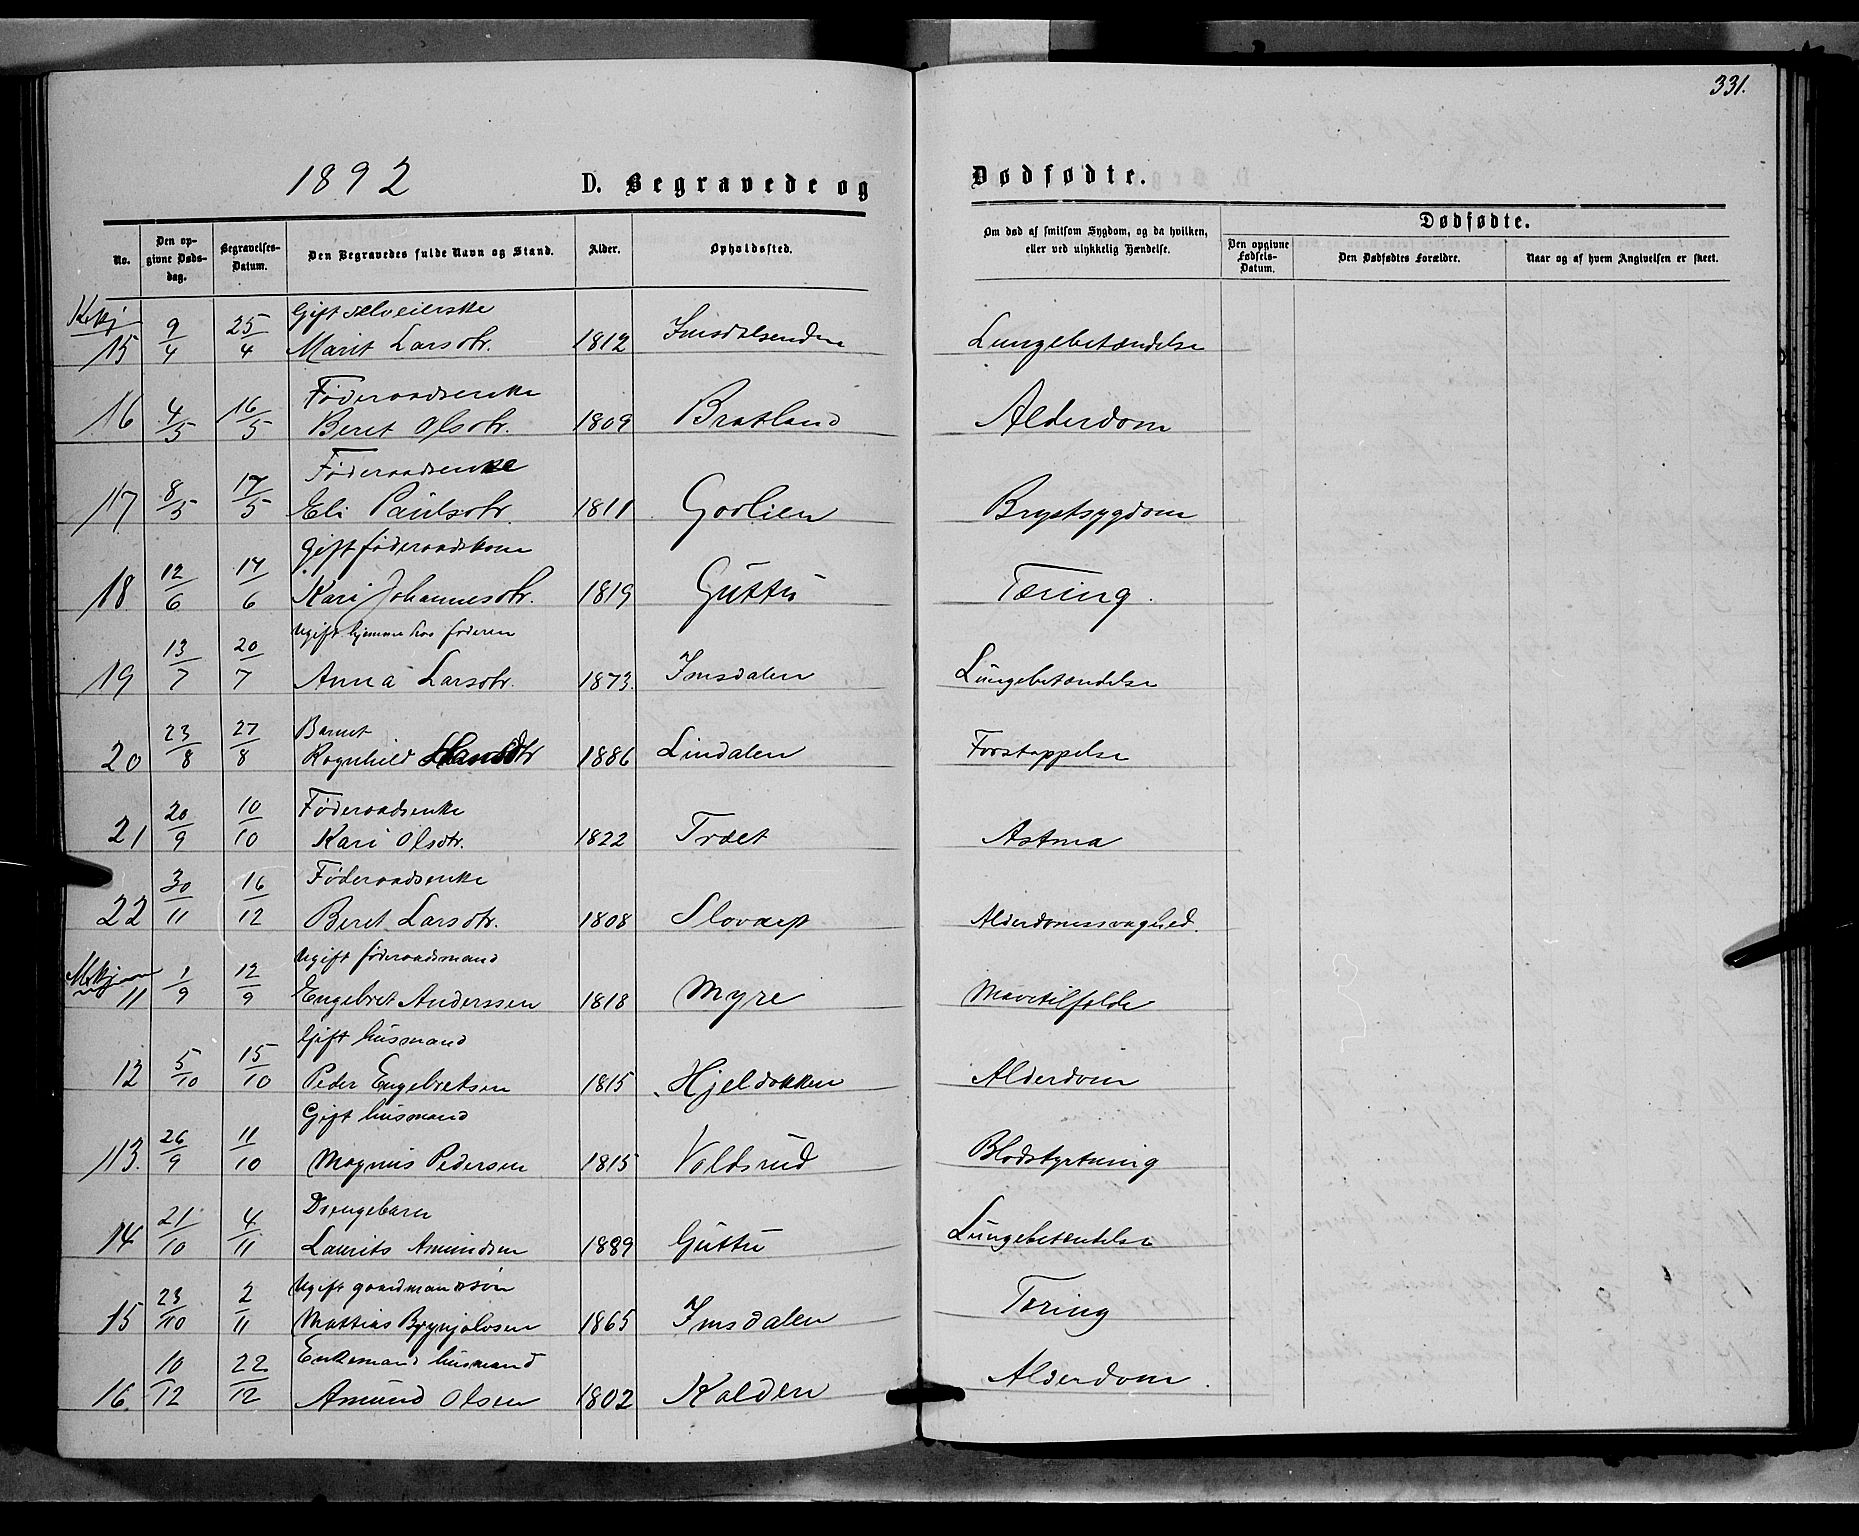 331.
1892 D. Begravede og Dødfødte.
No. Den opgivne Dødsdag. Begravelses-Datum. Den Begravedes fulde Navn og Stand. Alder. Opholdssted. Om død af smitsom Sygdom, og da hvilken, eller ved ulykkelig Hændelse. Dødfødte.
Den opgivne Fødsels-Datum. Den Dødfødtes Forældre. Naar og af hvem Angivelsen er skeet.
Gift selveierske
15 9/4 25/4 Marit Larsdtr. 1812 Imsdalsenden Lungebetændelse
Føderaadsenke
16 4/5 16/5 Beret Olsdtr. 1809 Bratland Alderdom
Føderaadsenke
17 8/5 17/5 Eli Paulsdtr. 1811 Goolien Brystsygdom
Gift føderaadskone
18 12/6 17/6 Kari Johannesdtr. 1819 Guttu Tæring.
Ugift hjemme hos føderen
19 13/7 20/7 Anna Larsdtr. 1873. Imsdalen Lungebetændelse
Barnet
20 23/8 27/8 Ragnhild Hansdtr 1886 Lindalen Forstoppelse
Føderaadsenke
21 20/9 10/10 Kari Olsdtr. 1822 Træet Astma
Føderaadsenke
22 30/11 16/12 Beret Larsdtr. 1808 Alderdomssvaghed.
Ugift føderaadsmand
11 1/9 12/9 Engebret Anderssen 1818 Myre Mavetilfælde
Gift husmand
12 5/10 15/10 Peder Engebretsen 1815 Hjeldokken Alderdom
Gift husmand
13. 26/9 11/10 Magnus Pedersen 1815 Voldsrud Blodstyrtning
Drengebarn
14 21/10 4/11 Laurits Amundsen 1889 Guttu Lungebetændelse
Ugift gaardmandssøn
15 23/10 2/11 Mattias Brynjolvsen 1865 Imsdalen Tæring
Enkemand husmand
16. 10/12 22/12 Amund Olsen 1802 Kolden Alderdom.